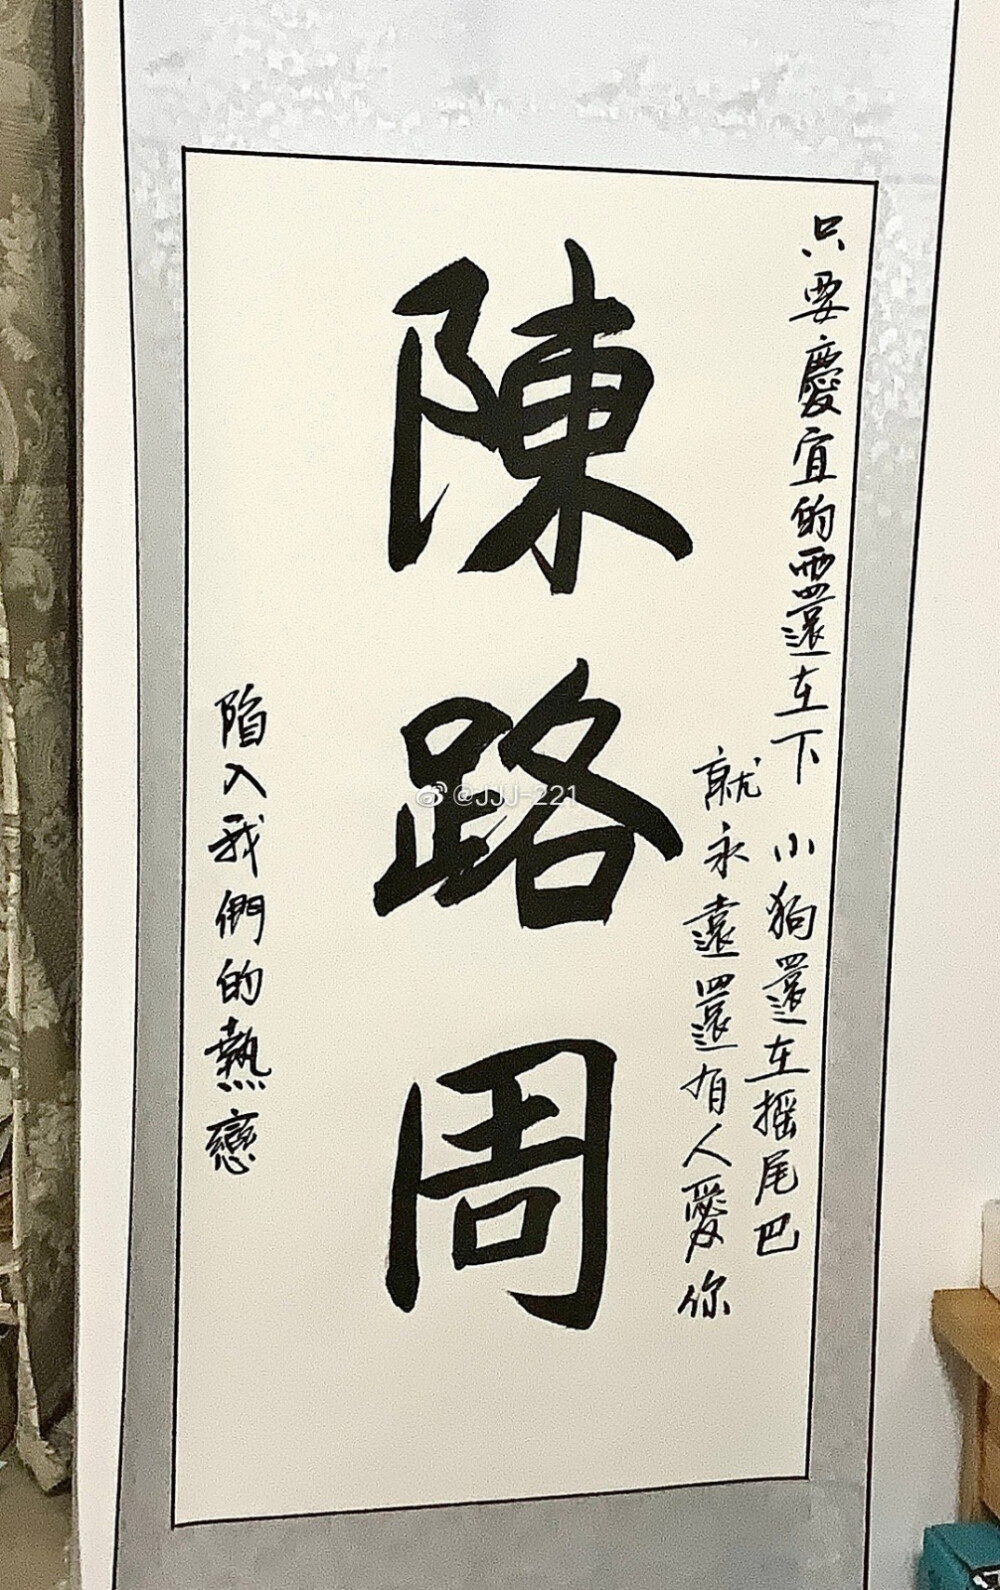 只要慶宜的雨還在下
小狗還在摇尾巴
就永遠還有人愛你
陳路周
陷入我們的熱戀
@JJJ-221